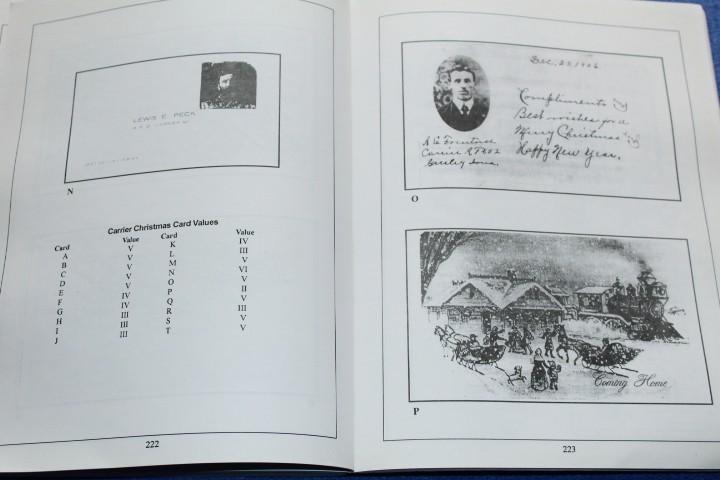 LEWIS E. PECK
N
Carrier Christmas Card Values
Card Value Card Value
A V K IV
B V L III
C V M V
D V N VI
E V O V
F IV P II
G IV Q V
H III R III
I III S V
J III T V
222
Dec. 25, 1906
Compliments &
Best wishes for a
Merry Christmas &
Happy New Year.
Carrier
Iowa.
O
Coming Home
P
223